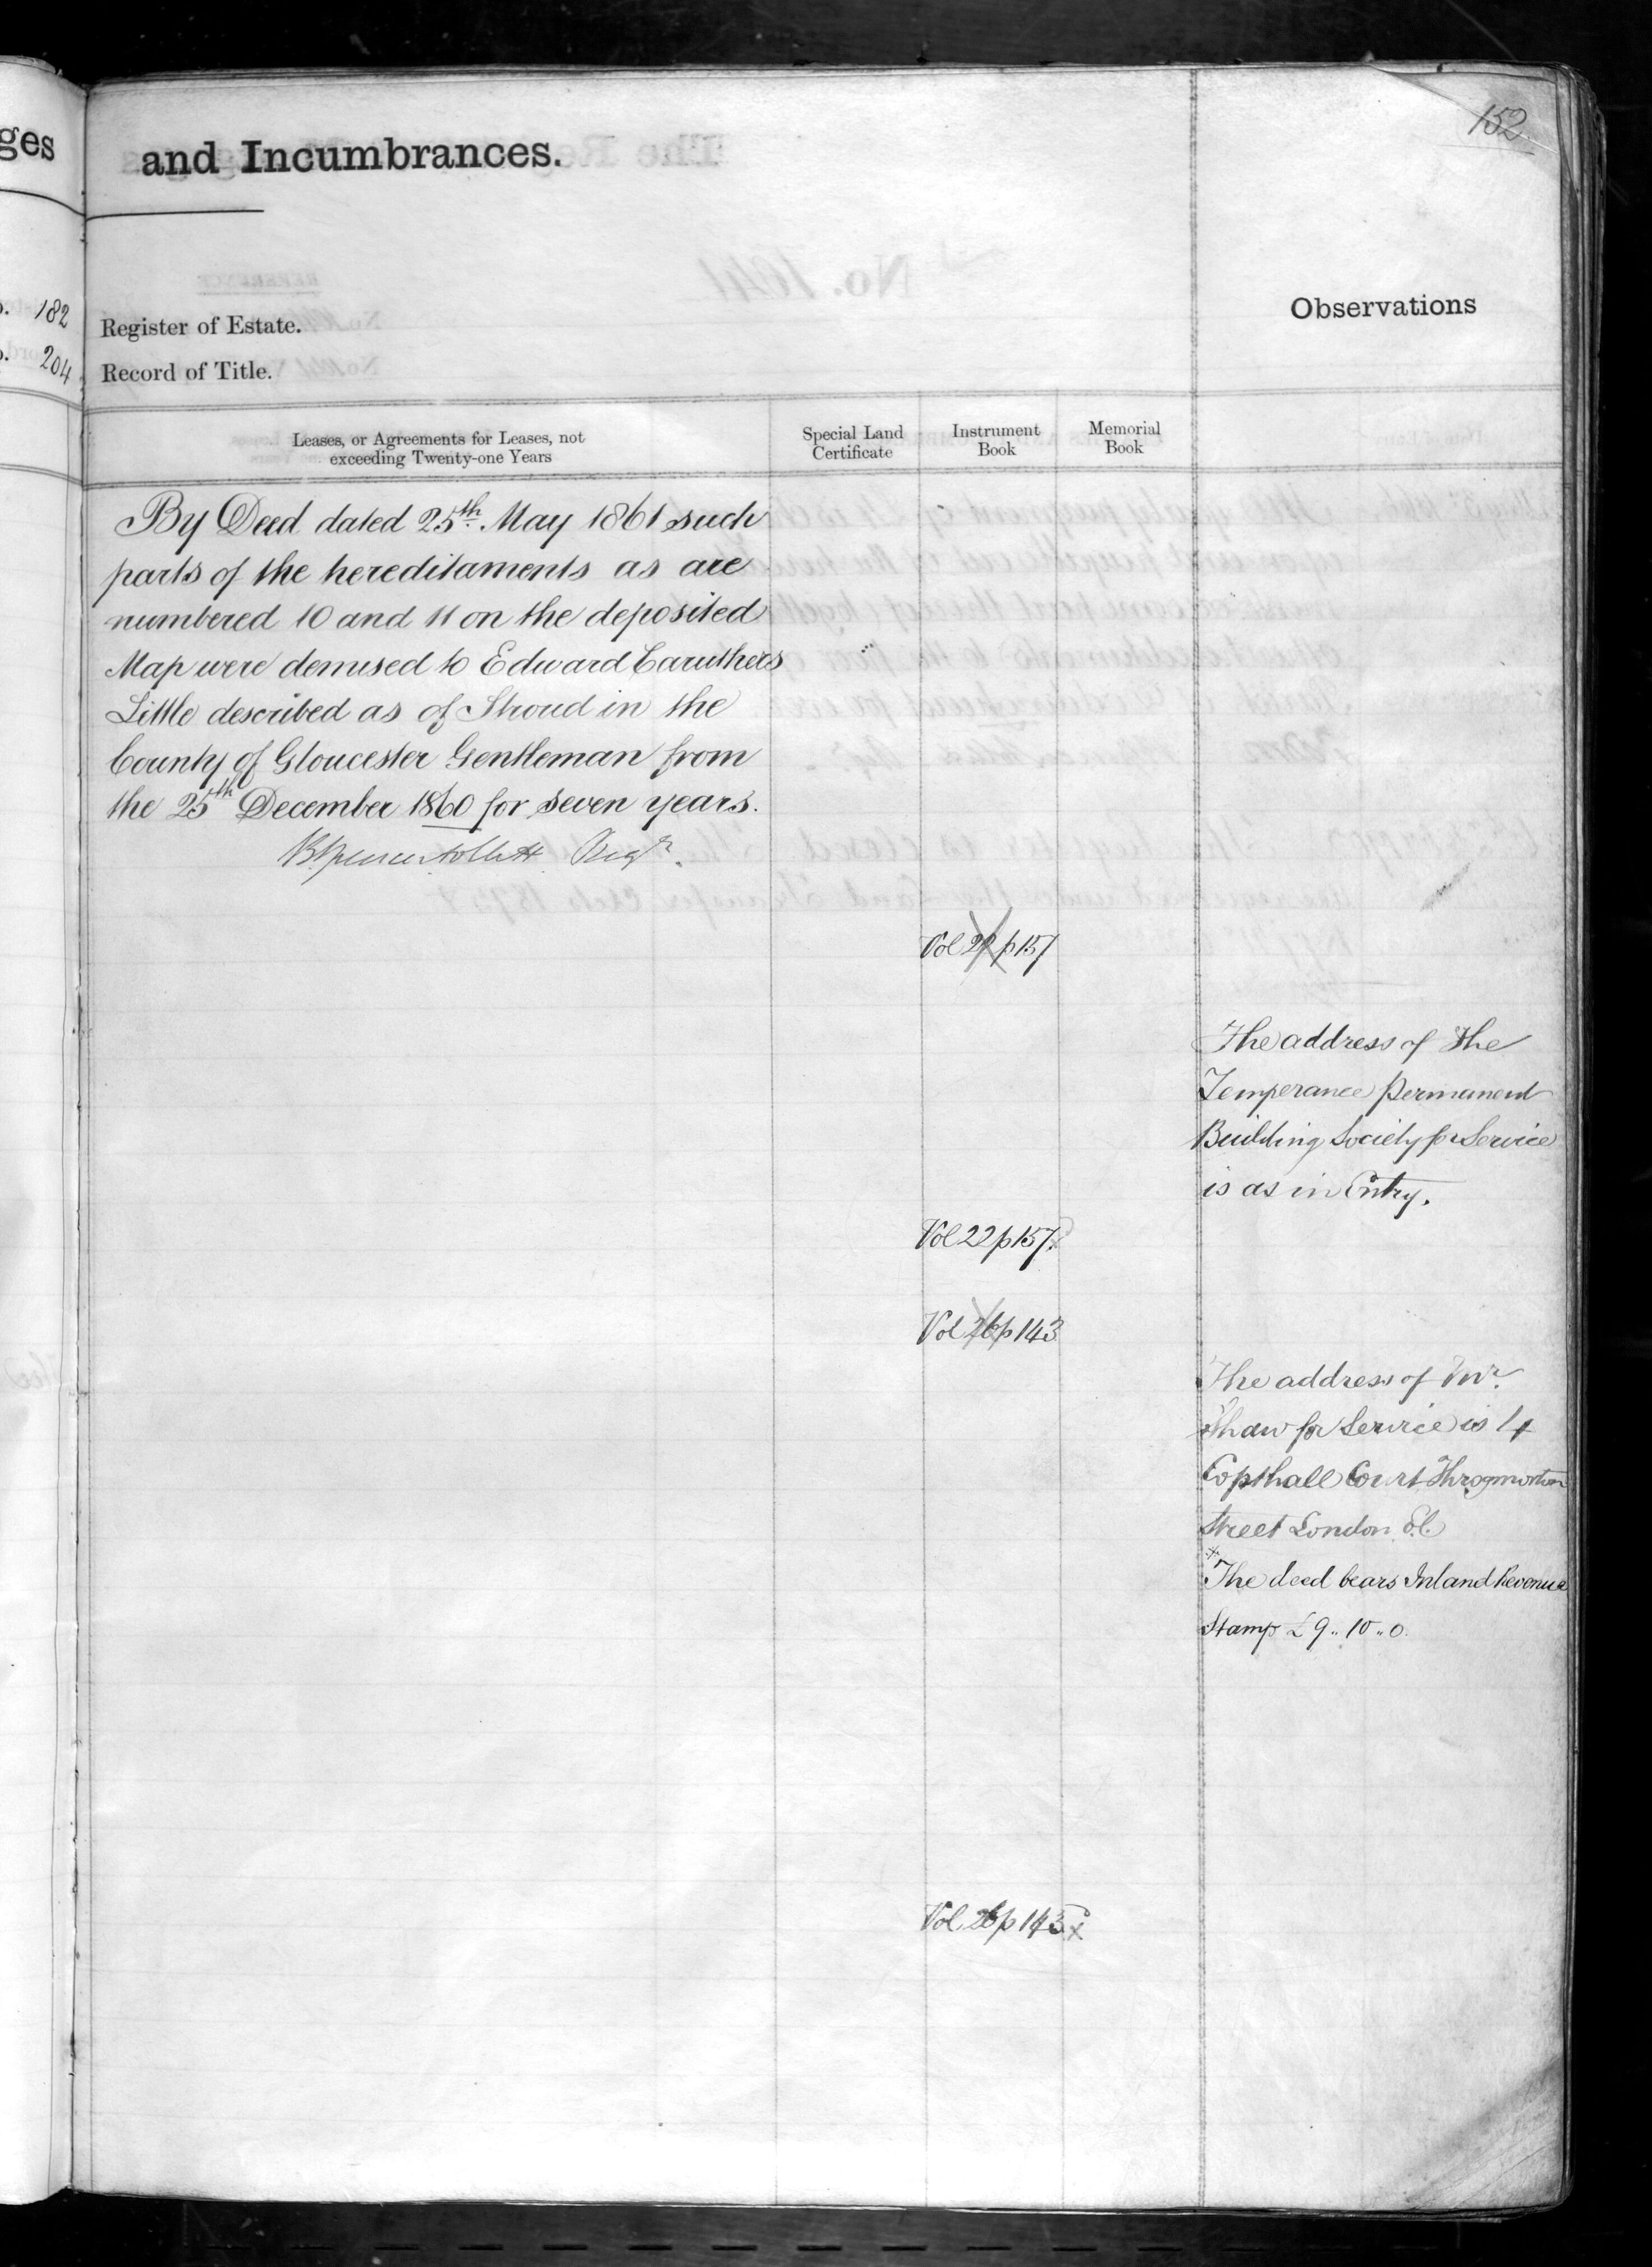 ges
and Incumbrances.
152
182
204
Register of Estate.
Record of Title.
Observations
Leases, or Agreements for Leases, not
exceeding Twenty-one Years
Special Land
Certificate
Instrument
Book
Memorial
Book
By Deed dated 25th May 1861 such
parts of the hereditaments as are
numbered 10 and 11 on the deposited
Map were demised to Edward Caruthers
Little described as of Stroud in the
County of Gloucester Gentleman from
the 25th December 1860 for seven years.
Regr.
Vol 22 p 157
The address of the
Temperance Permanent
Building Society for Service
is as in Entry.
Vol 22 p 157
Vol 26 p 143
The address of Mr.
Shaw for Service is 4
Copthall Court Throgmorton
Street London E.C.
The deed bears Inland Revenue
Stamp £9..10..0.
Vol 26 p 143